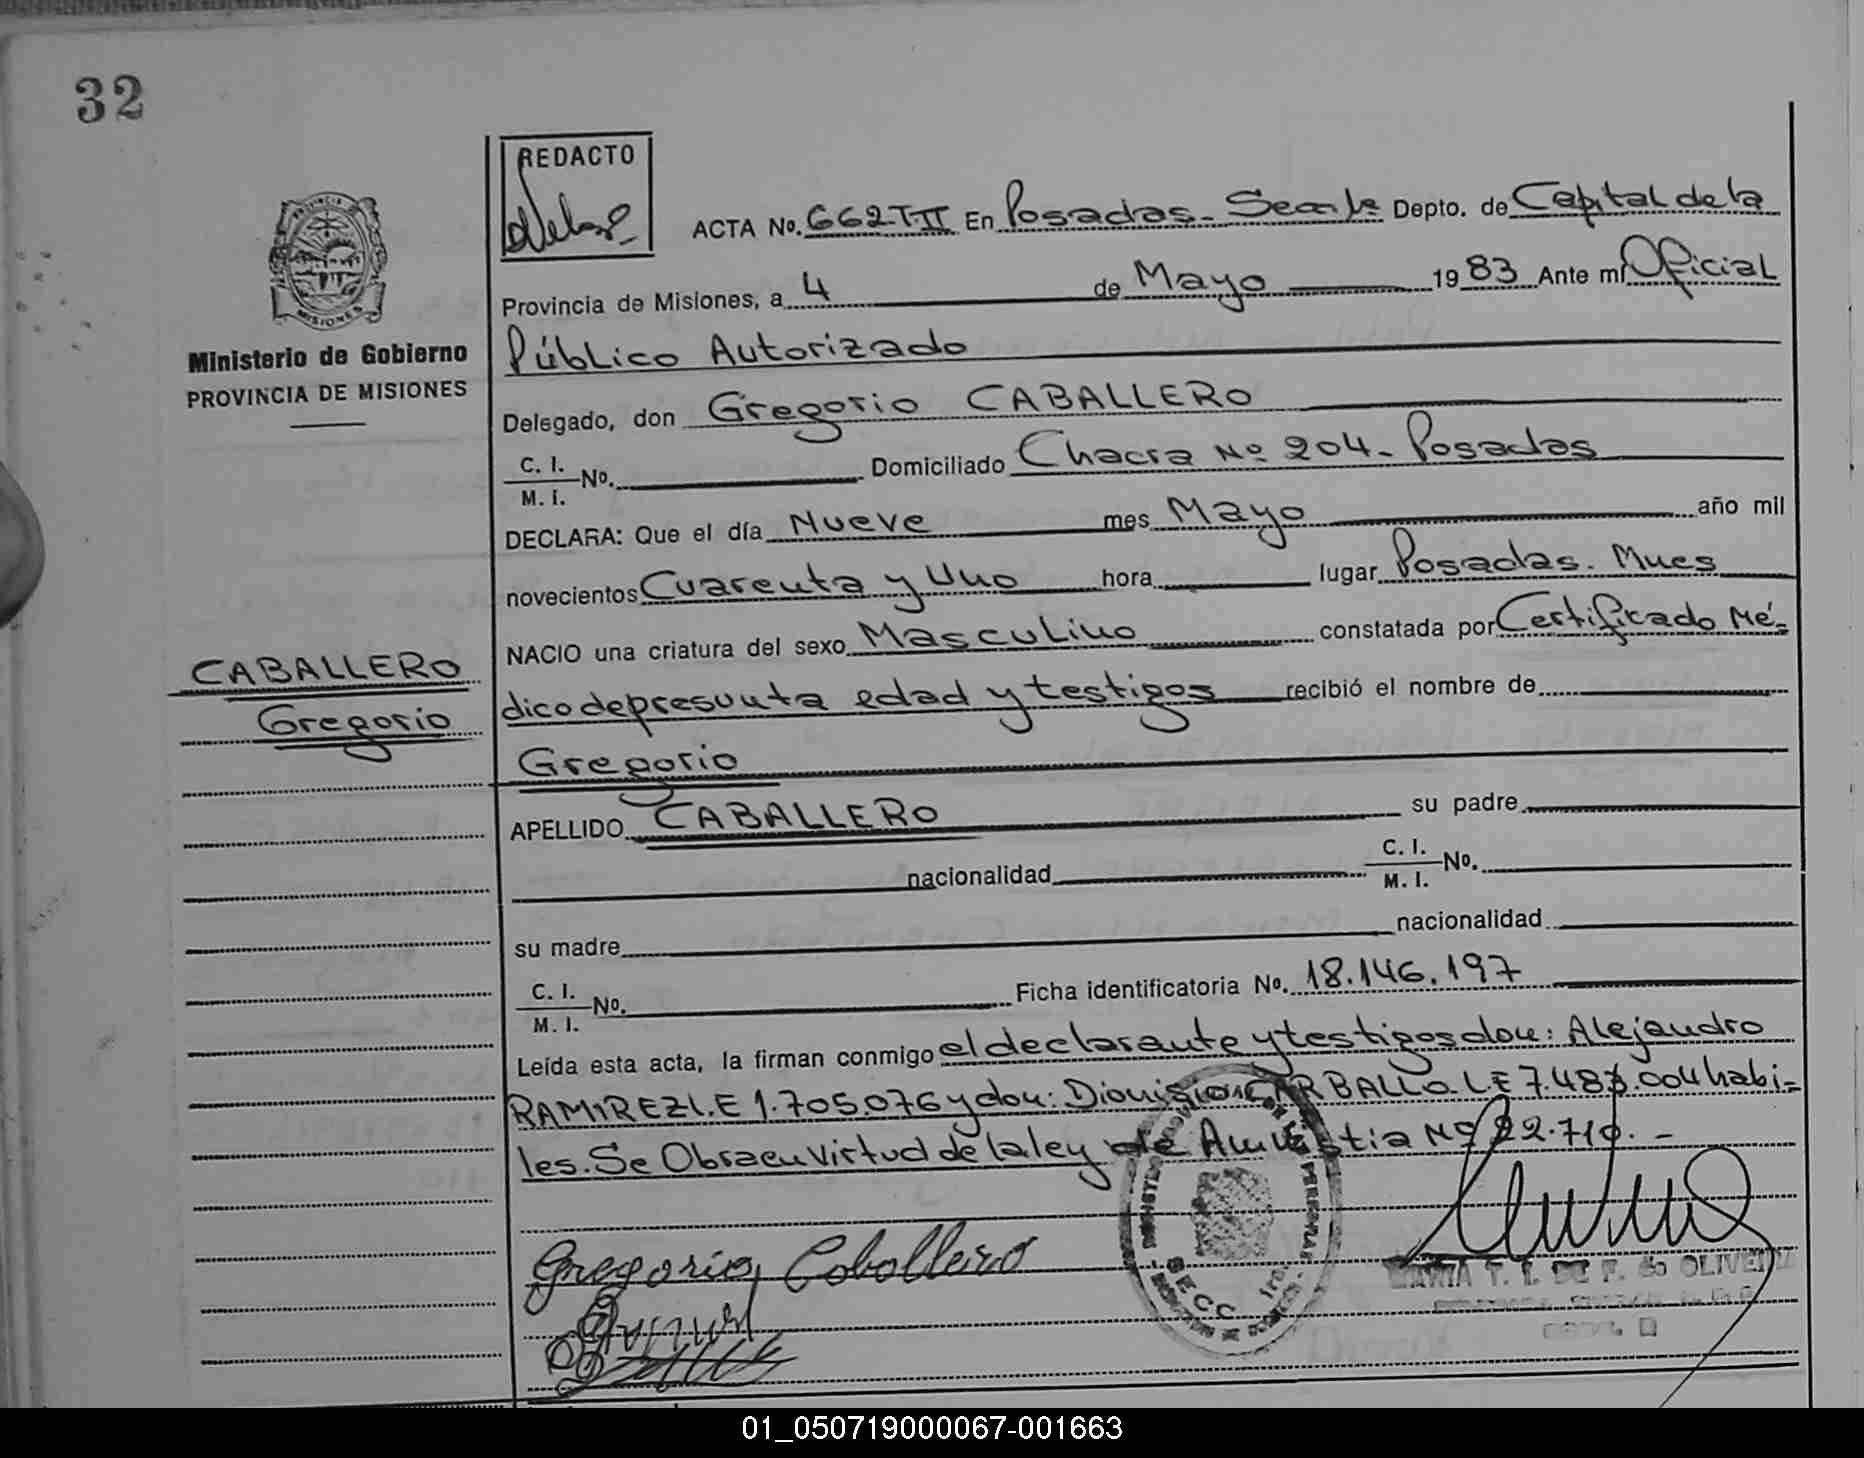 32
REDACTO
ACTA No. 662 T II En Posadas - Secc. 1a Depto. de Capital de la
Provincia de Misiones, a 4 de Mayo 1983 Ante mí Oficial
Público Autorizado
Ministerio de Gobierno
PROVINCIA DE MISIONES
Delegado, don Gregorio CABALLERO
C. I.
M. I. No. Domiciliado Chacra Nº 204 - Posadas
DECLARA: Que el día Nueve mes Mayo año mil
novecientos Cuarenta y Uno hora lugar Posadas. Mnes
NACIO una criatura del sexo Masculino constatada por Certificado Mé-
CABALLERO
Gregorio
dico de presunta edad y testigos recibió el nombre de
Gregorio
APELLIDO CABALLERO su padre
nacionalidad C. I.
M. I. No.
su madre nacionalidad
C. I.
M. I. No. Ficha identificatoria No. 18.146.197
Leída esta acta, la firman conmigo el declarante y testigos don: Alejandro
RAMIREZ L.E 1.705.076 y don: Dionisio CARBALLO. L.E 7.483.004 habi=
les. Se Obra en Virtud de la ley de Amnistia Nº 22.710. -
Gregorio Caballero
SECC. 1ra.
MARIA T. I. DE F. do OLIVEIRA
01_050719000067-001663